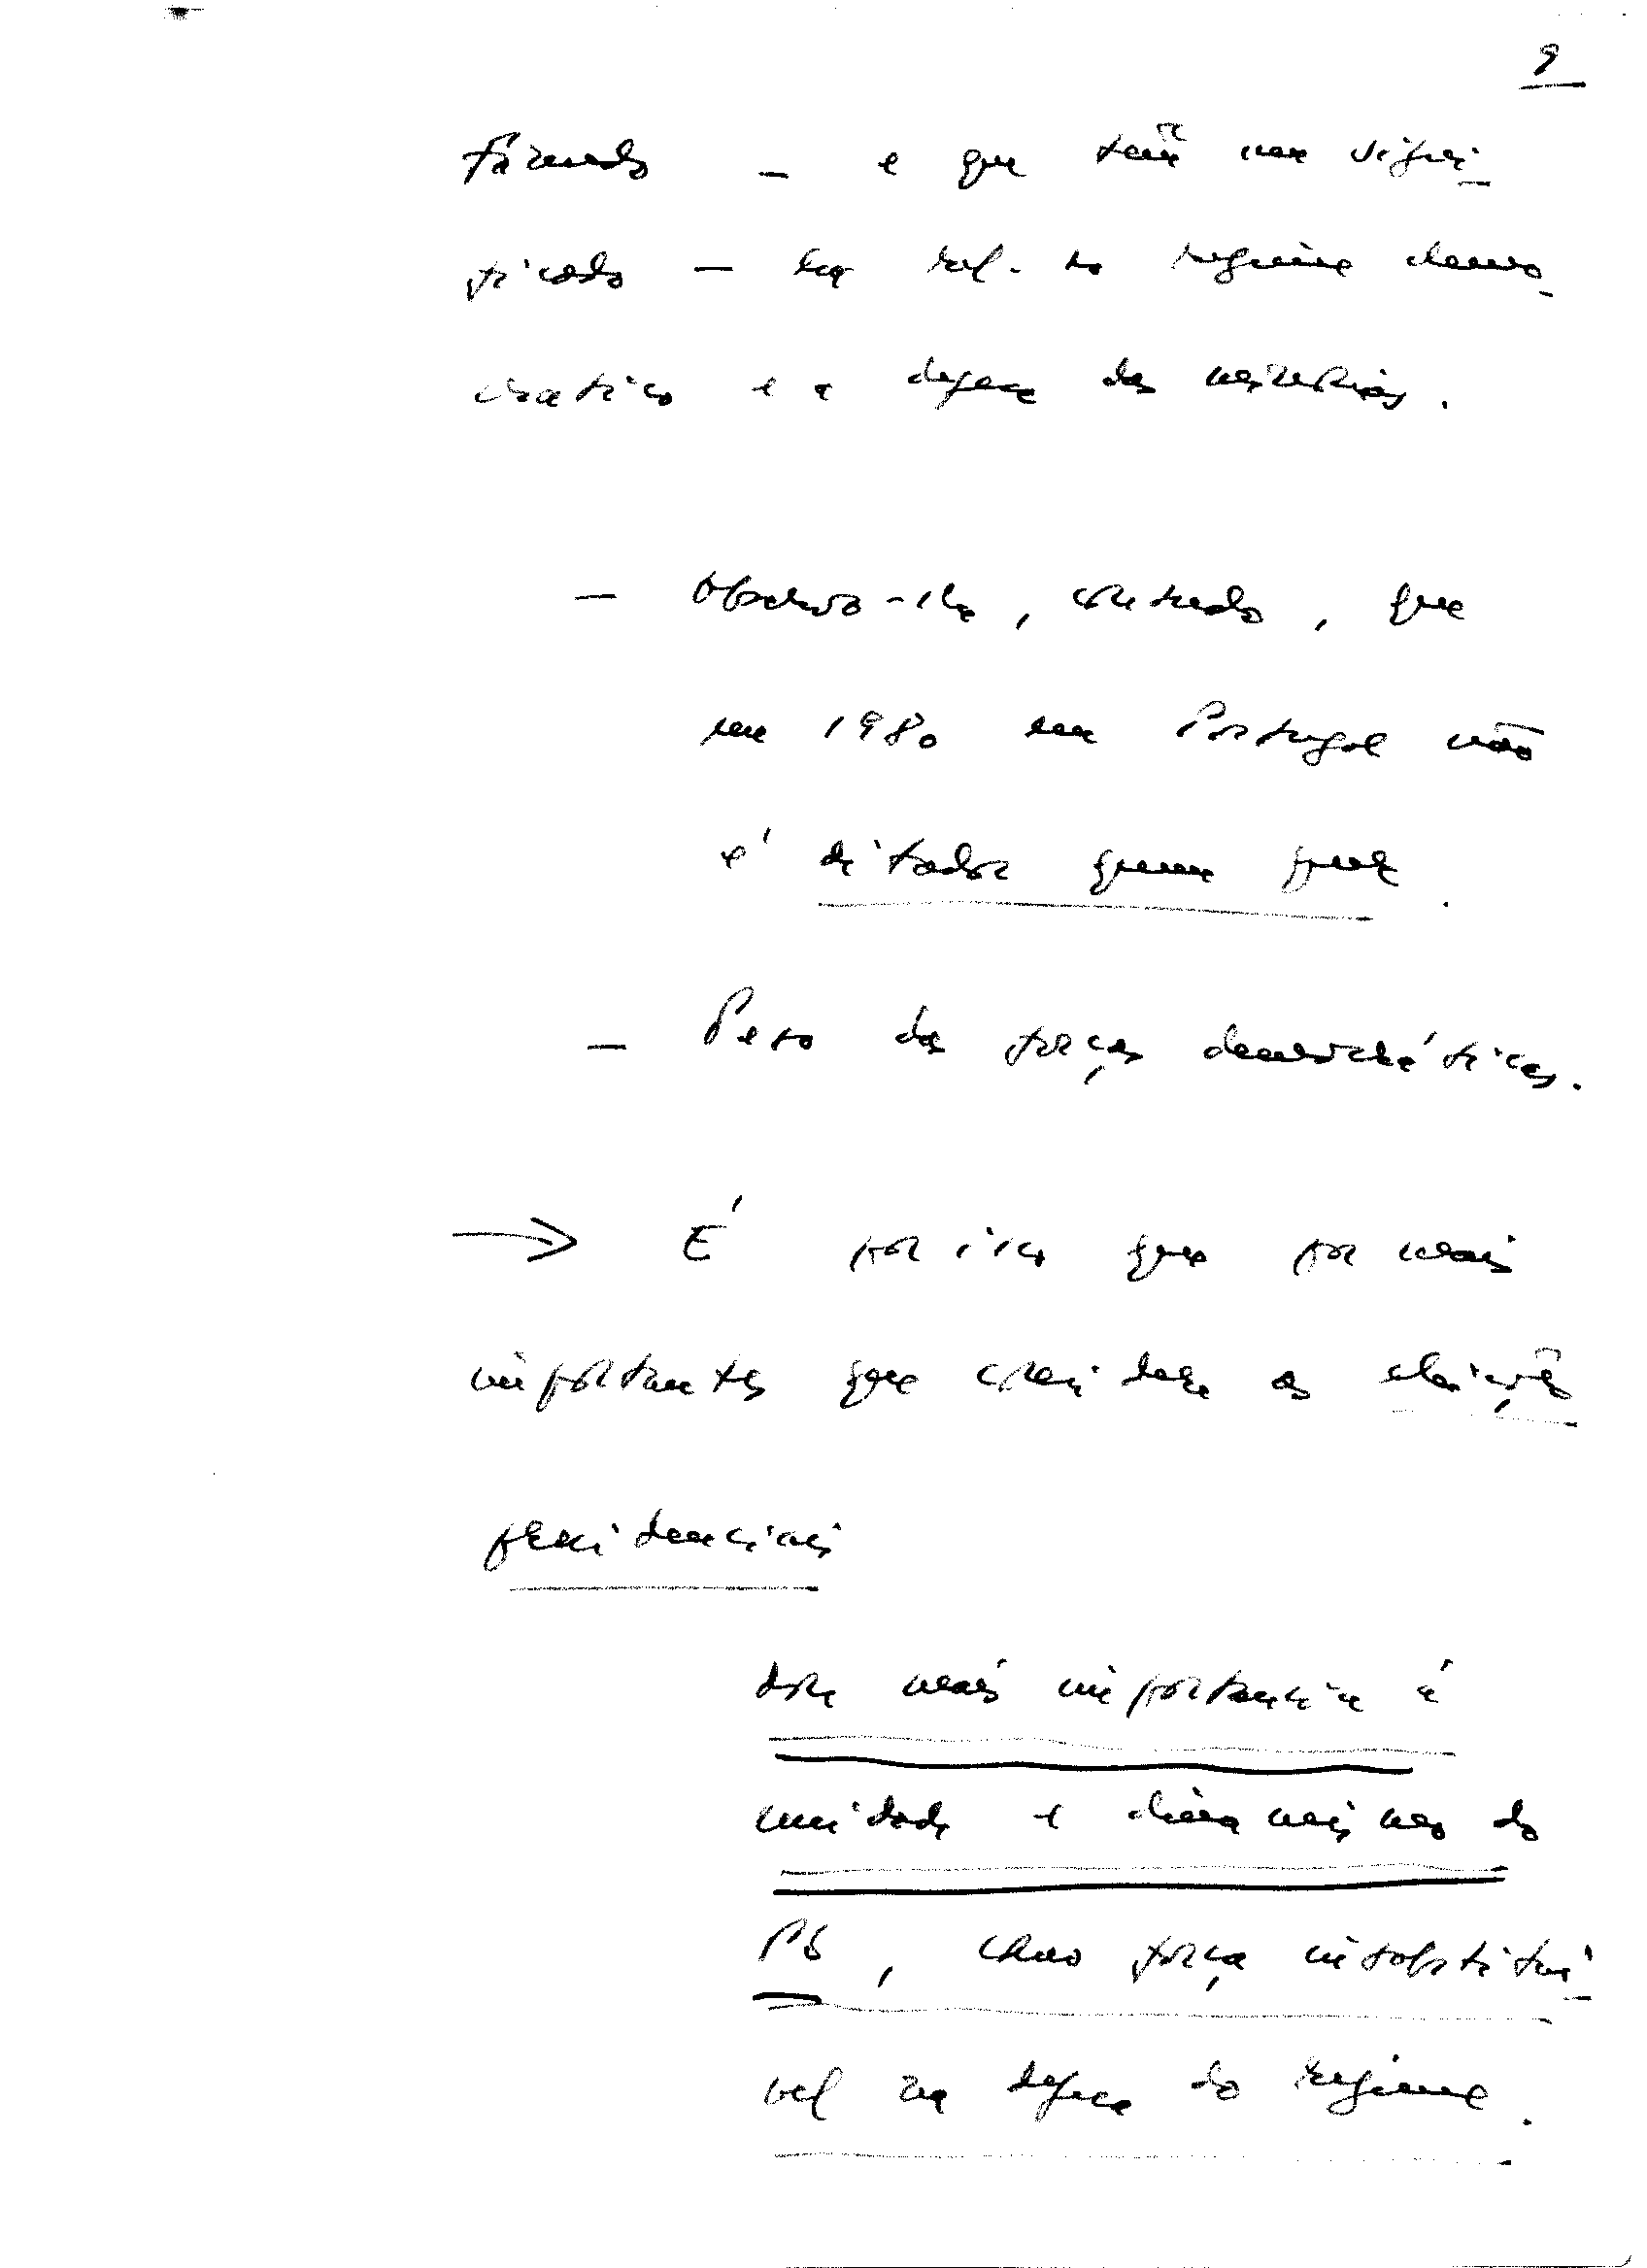 9
fazendo — e que têm um signi-
ficado — do regime demo-
cratico e a defesa das
— Observo-lhe, contudo, que
em 1980 em Portugal não
é ditador quem quer.
— Peso das forças democráticas.
→ É por isso que por mais
importantes que considere as eleições
presidenciais
dou mais importancia à
unidade e dinamismo do
PS, como força insubstitui-
vel na defesa do regime.